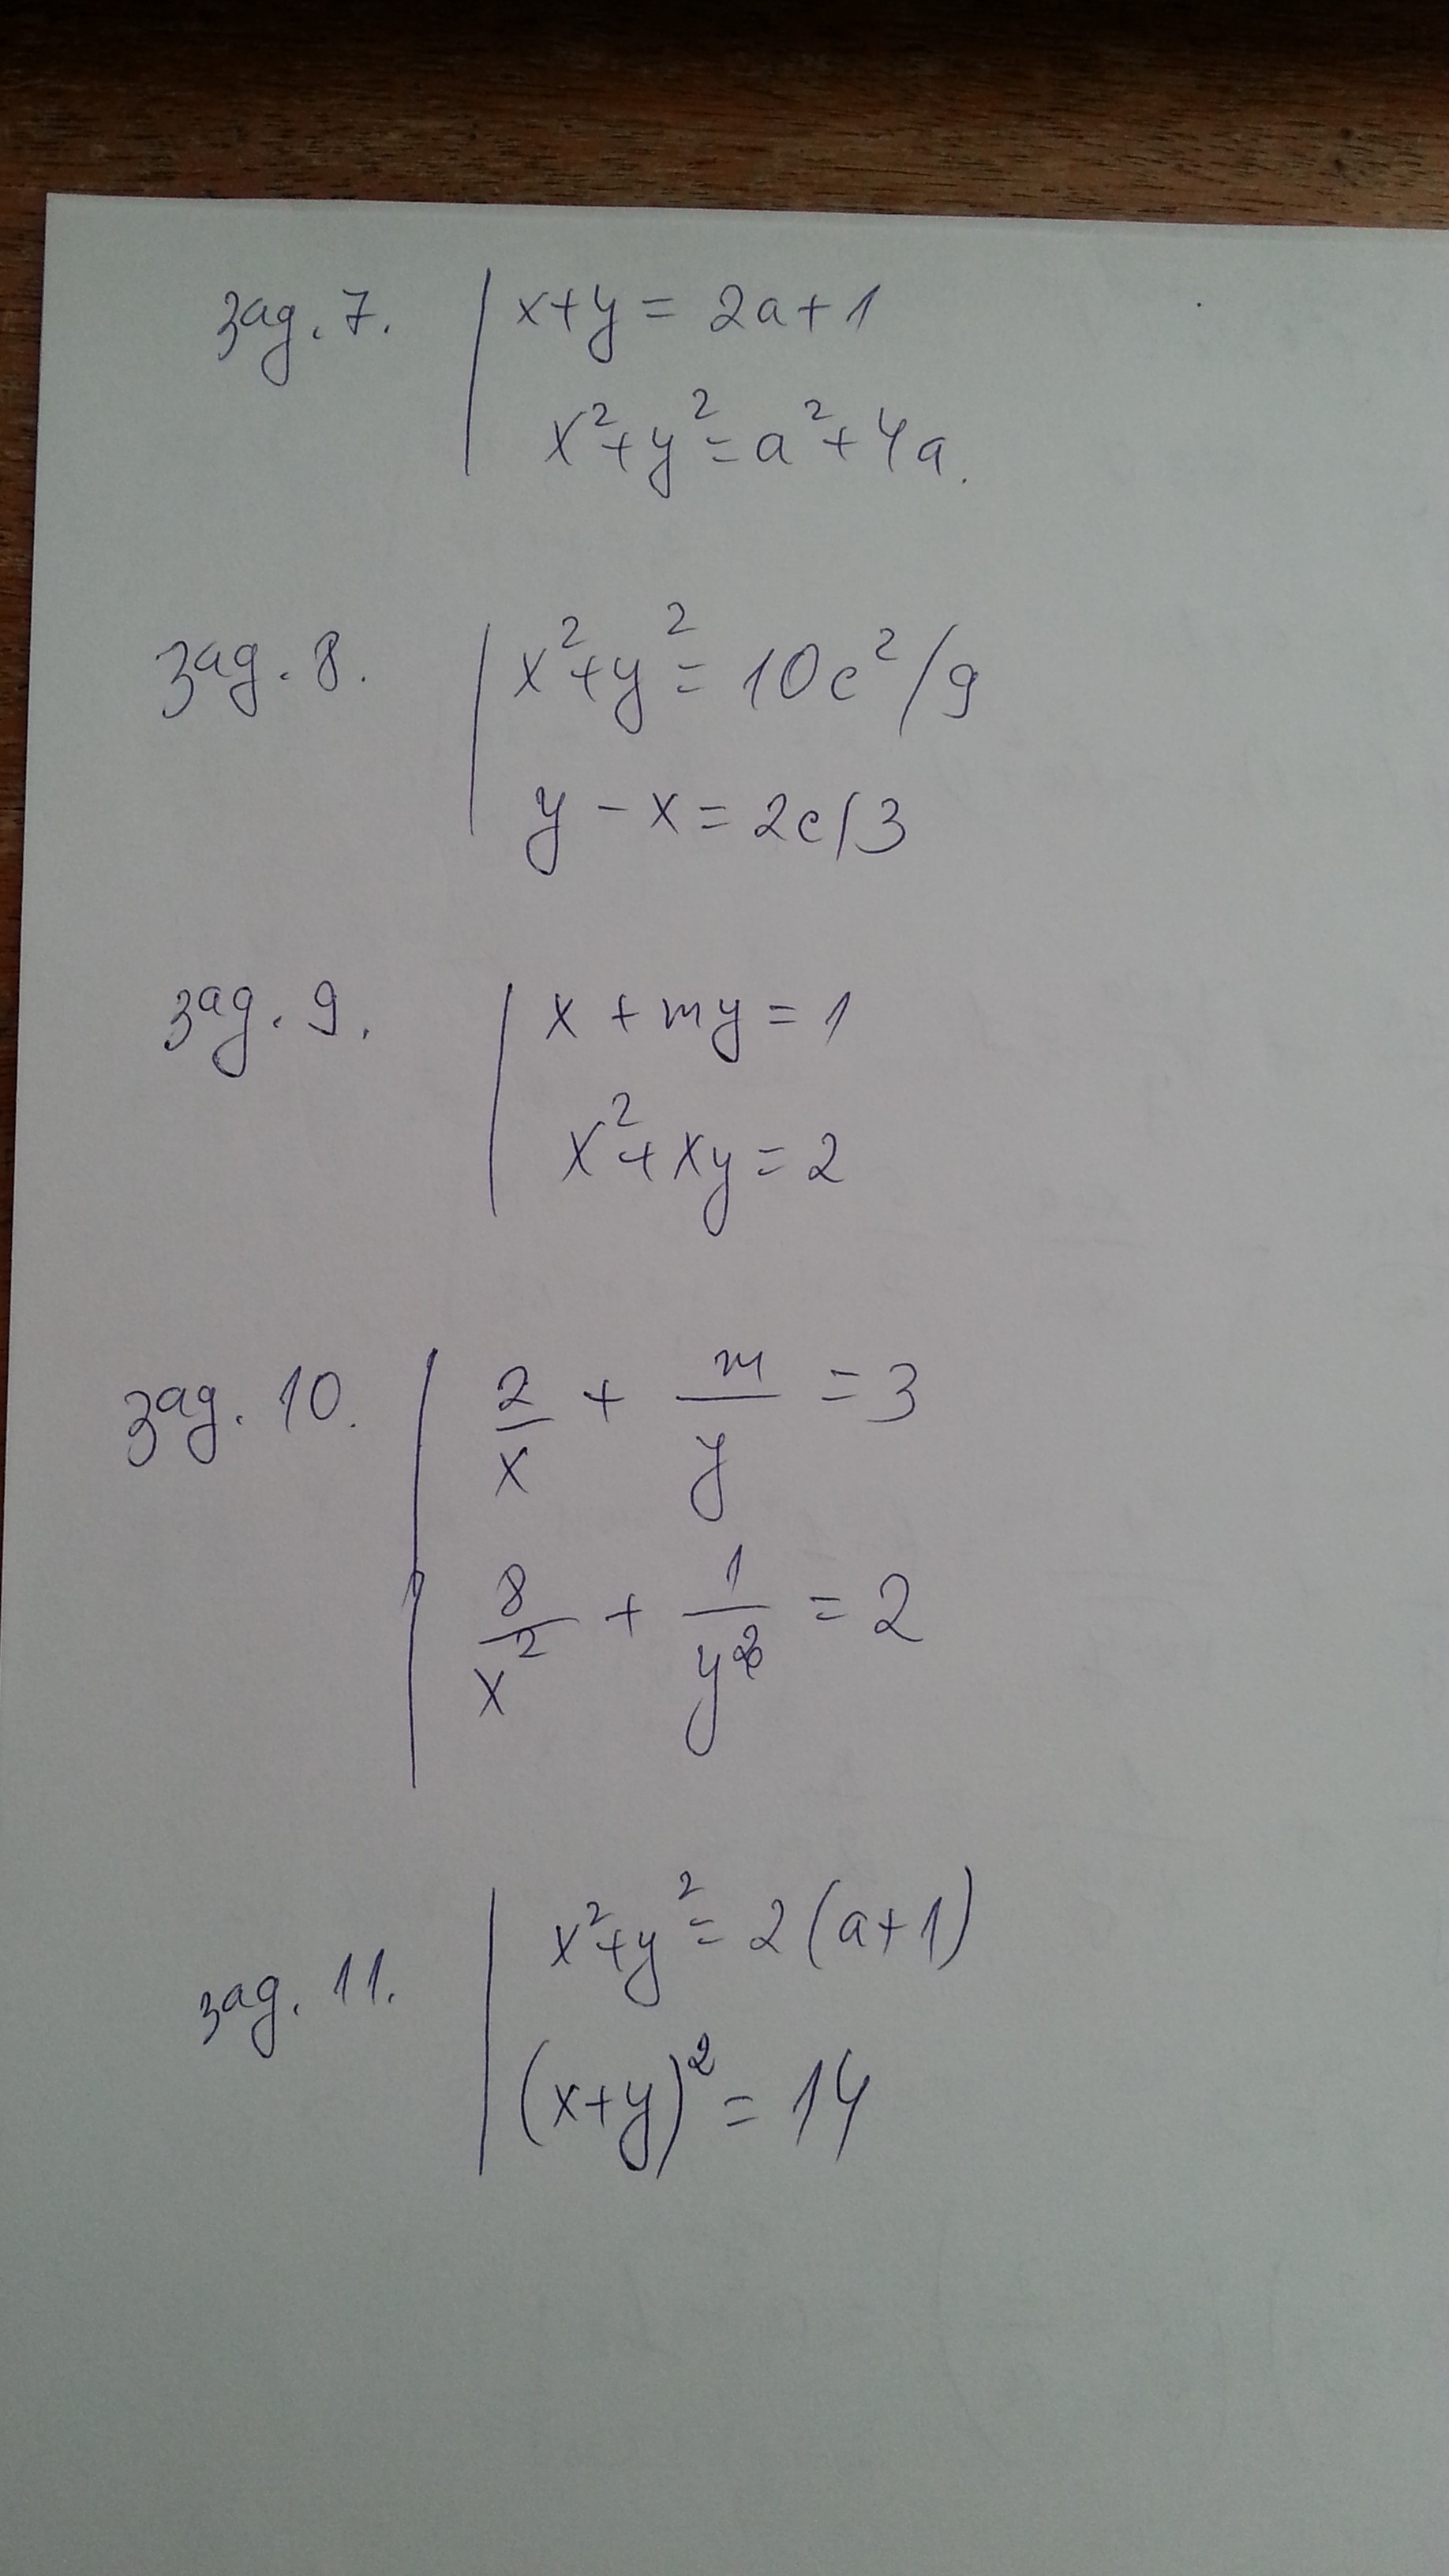 зад. 7. x+y = 2a+1
x²+y² = a²+4a.
зад. 8. x²+y² = 10c²/9
y - x = 2c/3
зад. 9. x + my = 1
x²+xy = 2
зад. 10. 2/x + m/y = 3
8/x² + 1/y² = 2
зад. 11. x²+y² = 2(a+1)
(x+y)² = 14